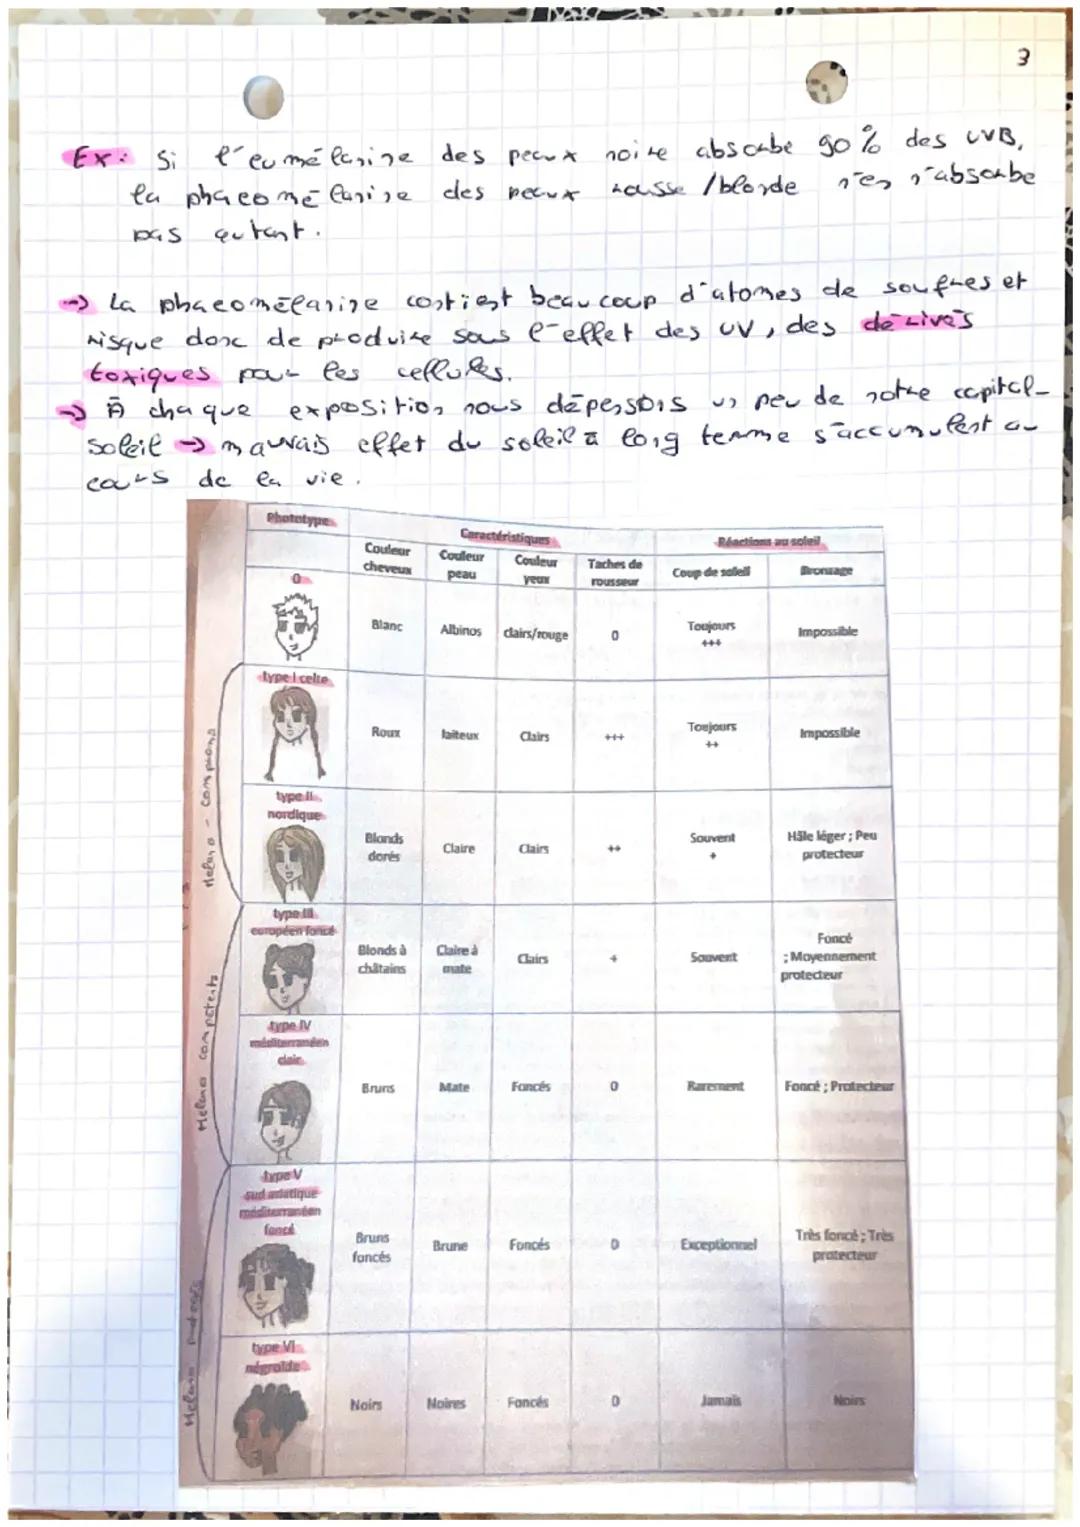 3
Ex: Si l'eumélanine des peaux noire absorbe 90% des UVB,
la phaeomélanine des peaux rousse /blonde n'en n'absorbe
pas autant.
→ La phaeomélanine contient beaucoup d'atomes de soufres et
risque donc de produire sous l'effet des UV, des dérivés
toxiques pour les cellules.
→ À chaque exposition nous dépensons un peu de notre capital-
soleil → mauvais effet du soleil à long terme s'accumulent au
cours de la vie.
Phototype Caractéristiques Réactions au soleil
Couleur cheveux Couleur peau Couleur yeux Taches de rousseur Coup de soleil Bronzage
0
Blanc Albinos clairs/rouge 0 Toujours +++ Impossible
type I celte
Roux laiteux Clairs +++ Toujours ++ Impossible
type II nordique
Blonds dorés Claire Clairs ++ Souvent + Hâle léger ; Peu protecteur
type III européen foncé
Blonds à châtains Claire à mate Clairs + Souvent Foncé ; Moyennement protecteur
type IV méditerranéen clair
Bruns Mate Foncés 0 Rarement Foncé ; Protecteur
type V sud asiatique méditerranéen foncé
Bruns foncés Brune Foncés 0 Exceptionnel Très foncé ; Très protecteur
type VI négroïde
Noirs Noires Foncés 0 Jamais Noirs
Melano - compromis
Melano competents
Melano